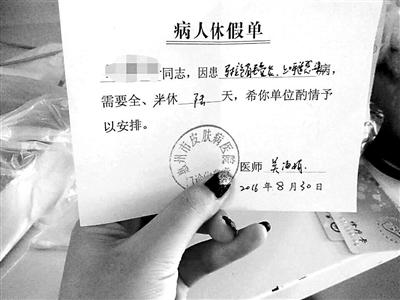 病人休假单
同志，因患
病，
需要全、半休 陆 天，希你单位酌情予
以安排。
惠州市皮肤病医院
医师 吴
2016年8月30日